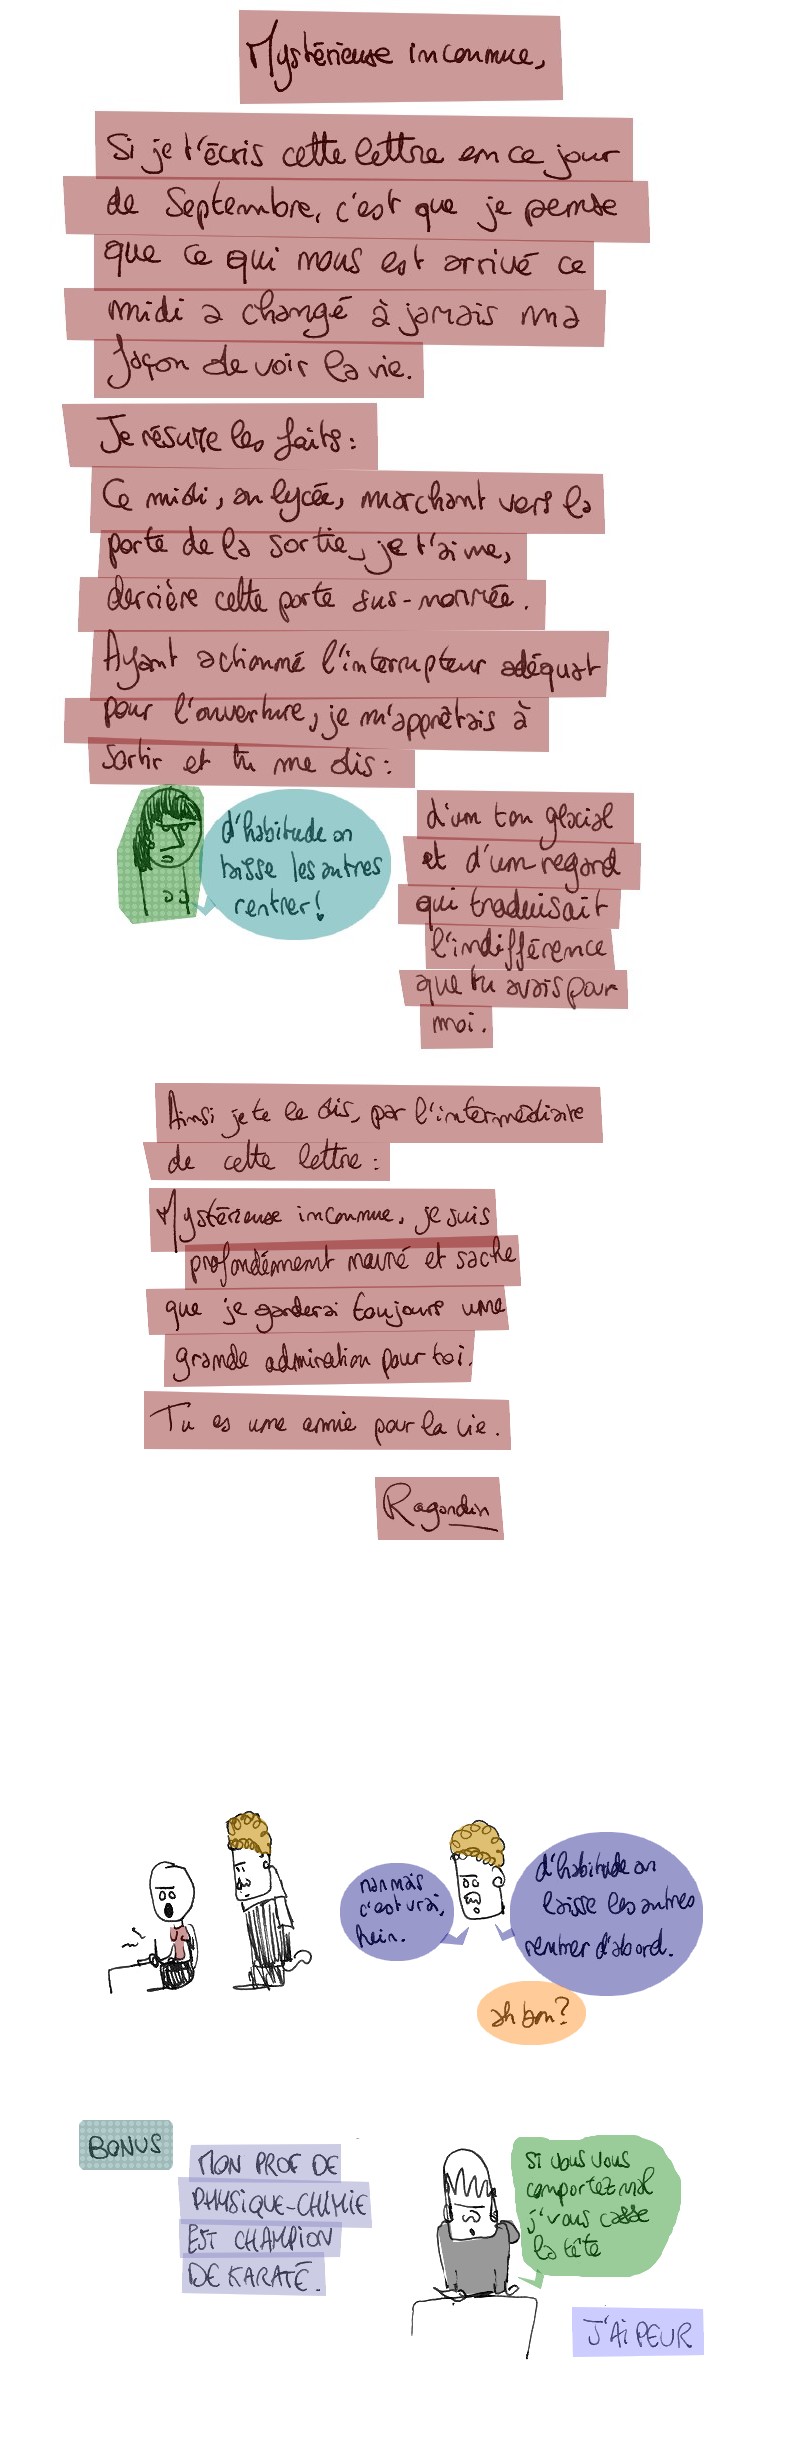 Mystérieuse inconnue,
Si je t'écris cette lettre en ce jour
de Septembre, c'est que je pense
que ce qui nous est arrivé ce
midi a changé à jamais ma
façon de voir la vie.
Je résume les faits :
Ce midi, au lycée, marchant vers la
porte de la sortie, je t'aime,
derrière cette porte sus-nommée.
Ayant actionné l'interrupteur adéquat
pour l'ouverture, je m'apprêtais à
sortir et tu me dis :
d'habitude on
laisse les autres
rentrer !
d'un ton glacial
et d'un regard
qui traduisait
l'indifférence
que tu avais pour
moi.
Ainsi je te le dis, par l'intermédiaire
de cette lettre :
Mystérieuse inconnue, je suis
profondément navré et sache
que je garderai toujours une
grande admiration pour toi.
Tu es une amie pour la vie.
Ragondin
nan mais
c'est vrai,
hein.
d'habitude on
laisse les autres
rentrer d'abord.
ah bon ?
BONUS
MON PROF DE
PHYSIQUE-CHIMIE
EST CHAMPION
DE KARATÉ.
Si vous vous
comportez mal
j'vous casse
la tête
J'AI PEUR